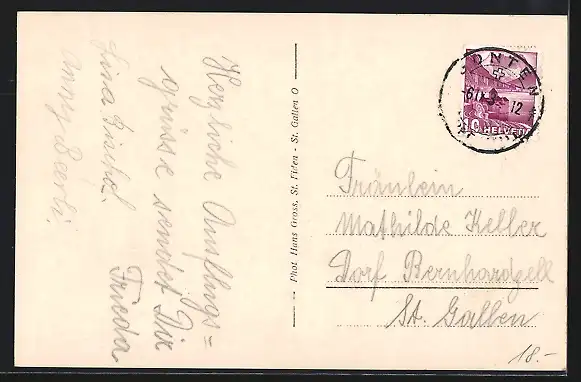 Herzliche Ausflugs=
grüsse sendet Dir
Frieda
Lina Bischof.
Anny Baerli.
Phot. Hans Gross, St. Fiden - St. Gallen O
GONTEN
12
10 HELVETIA
Fräulein
Mathilde Keller
Dorf Bernhardzell
St. Gallen
18.-